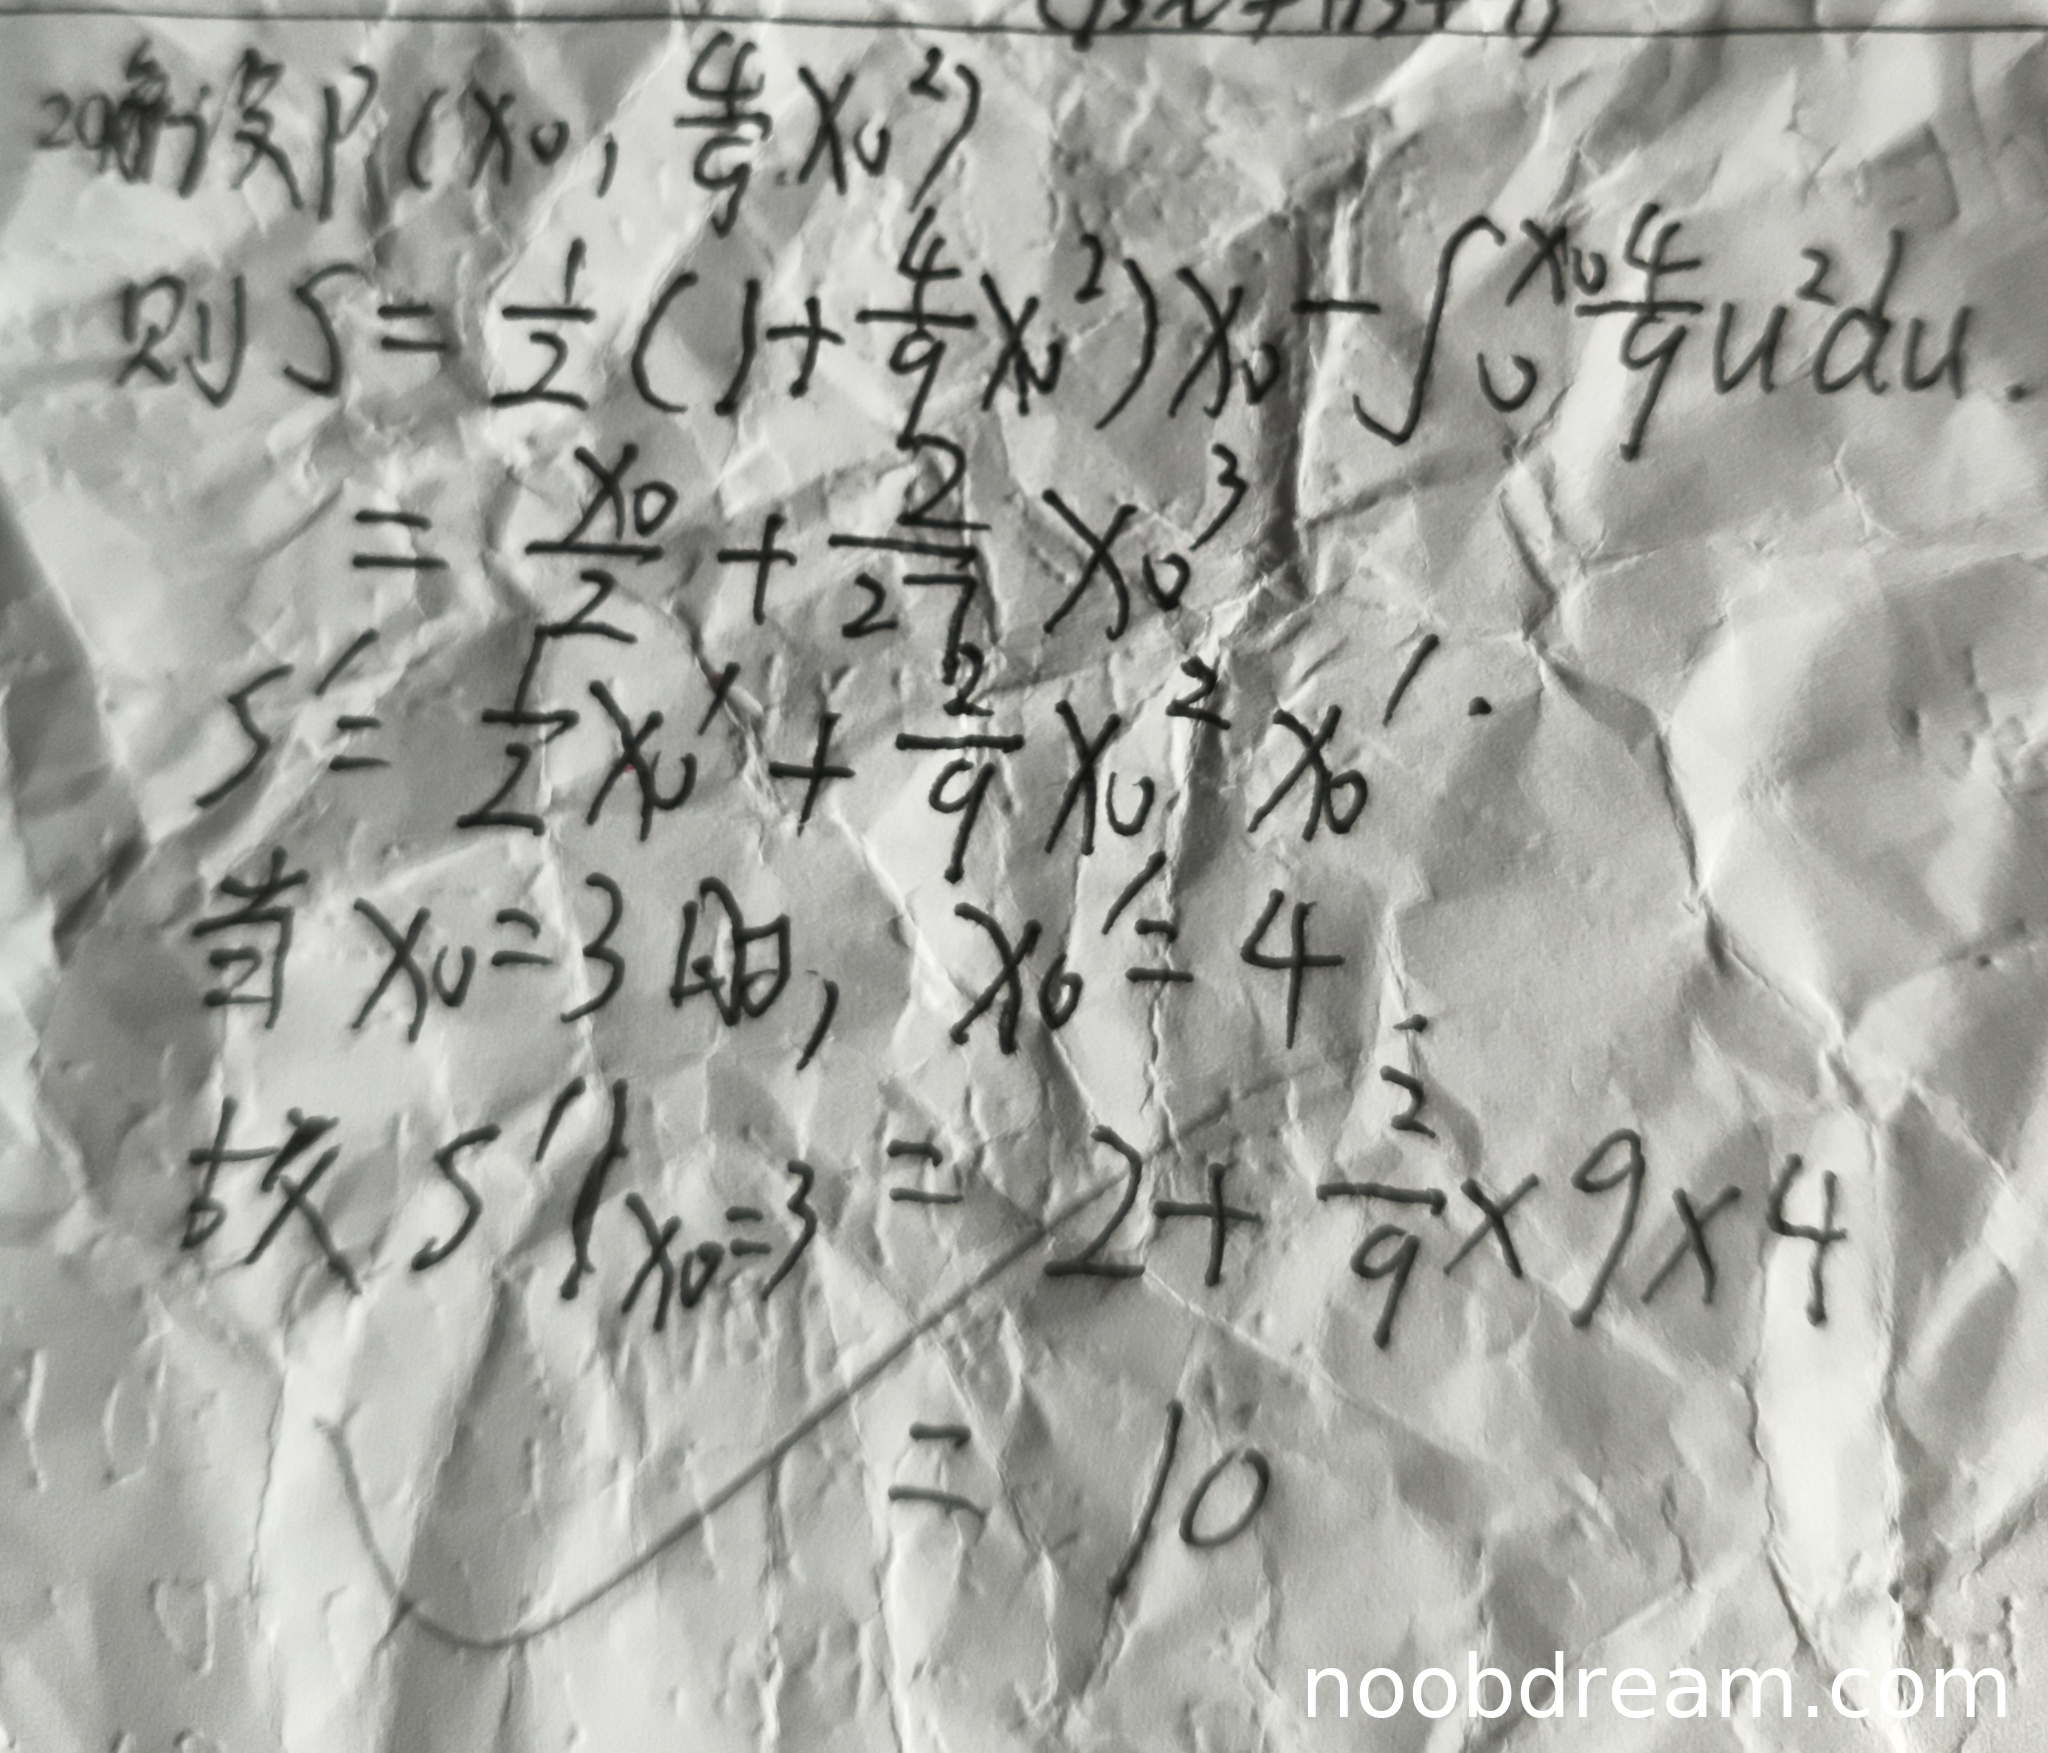 20解设P(x₀, 4/9 x₀²)
则 S = 1/2 (1 + 4/9 x₀²) x₀ - ∫₀^x₀ 4/9 u² du.
= x₀/2 + 2/27 x₀³
S' = 1/2 x₀' + 2/9 x₀² x₀'.
当 x₀ = 3 时, x₀' = 4
故 S'|x₀=3 = 2 + 2/9 × 9 × 4
= 10
noobdream.com